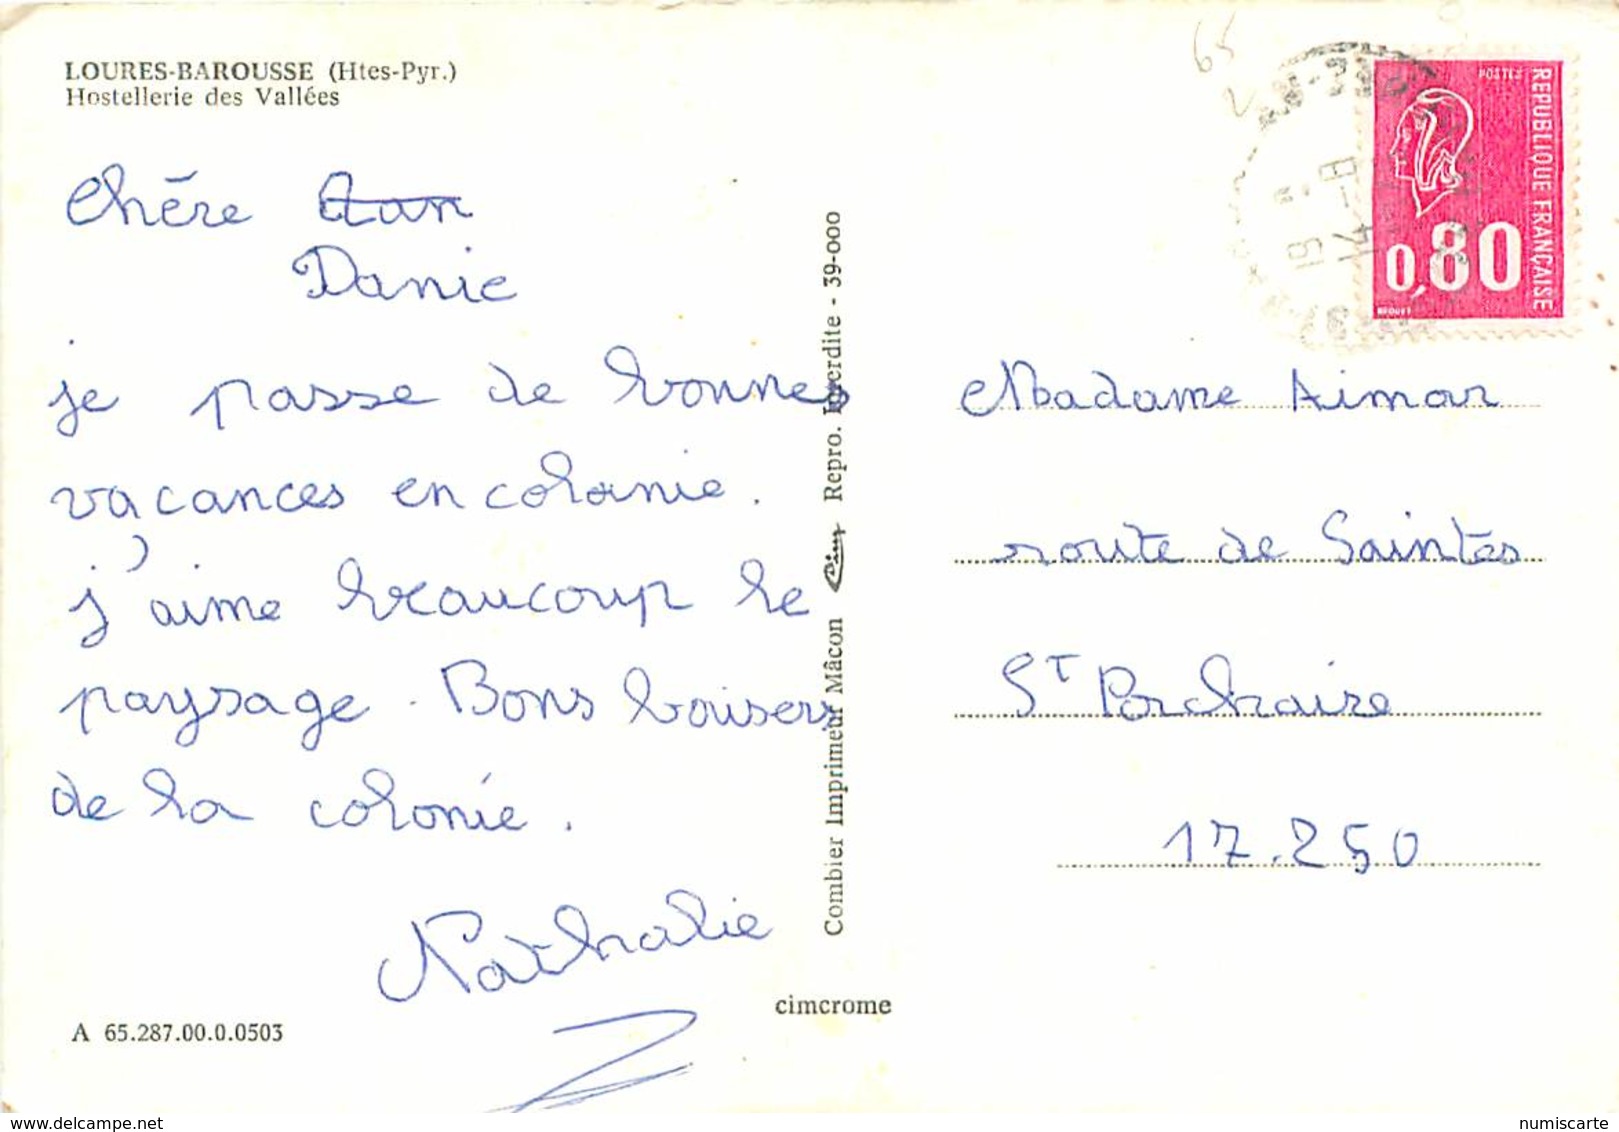 LOURES-BAROUSSE (Htes-Pyr.)
Hostellerie des Vallées
Chère
Danie
je passe de bonnes
vacances en colonie.
j'aime beaucoup le
paysage. Bons baisers
de la colonie.
Nathalie
A 65.287.00.0.0503
Combier Imprimeur Mâcon Cim Repro. Interdite - 39-000
cimcrome
65
2
POSTES
REPUBLIQUE FRANÇAISE
0,80
Madame Aimar
route de Saintes
ST Porchaire
17.250
delcampe.net
numiscarte